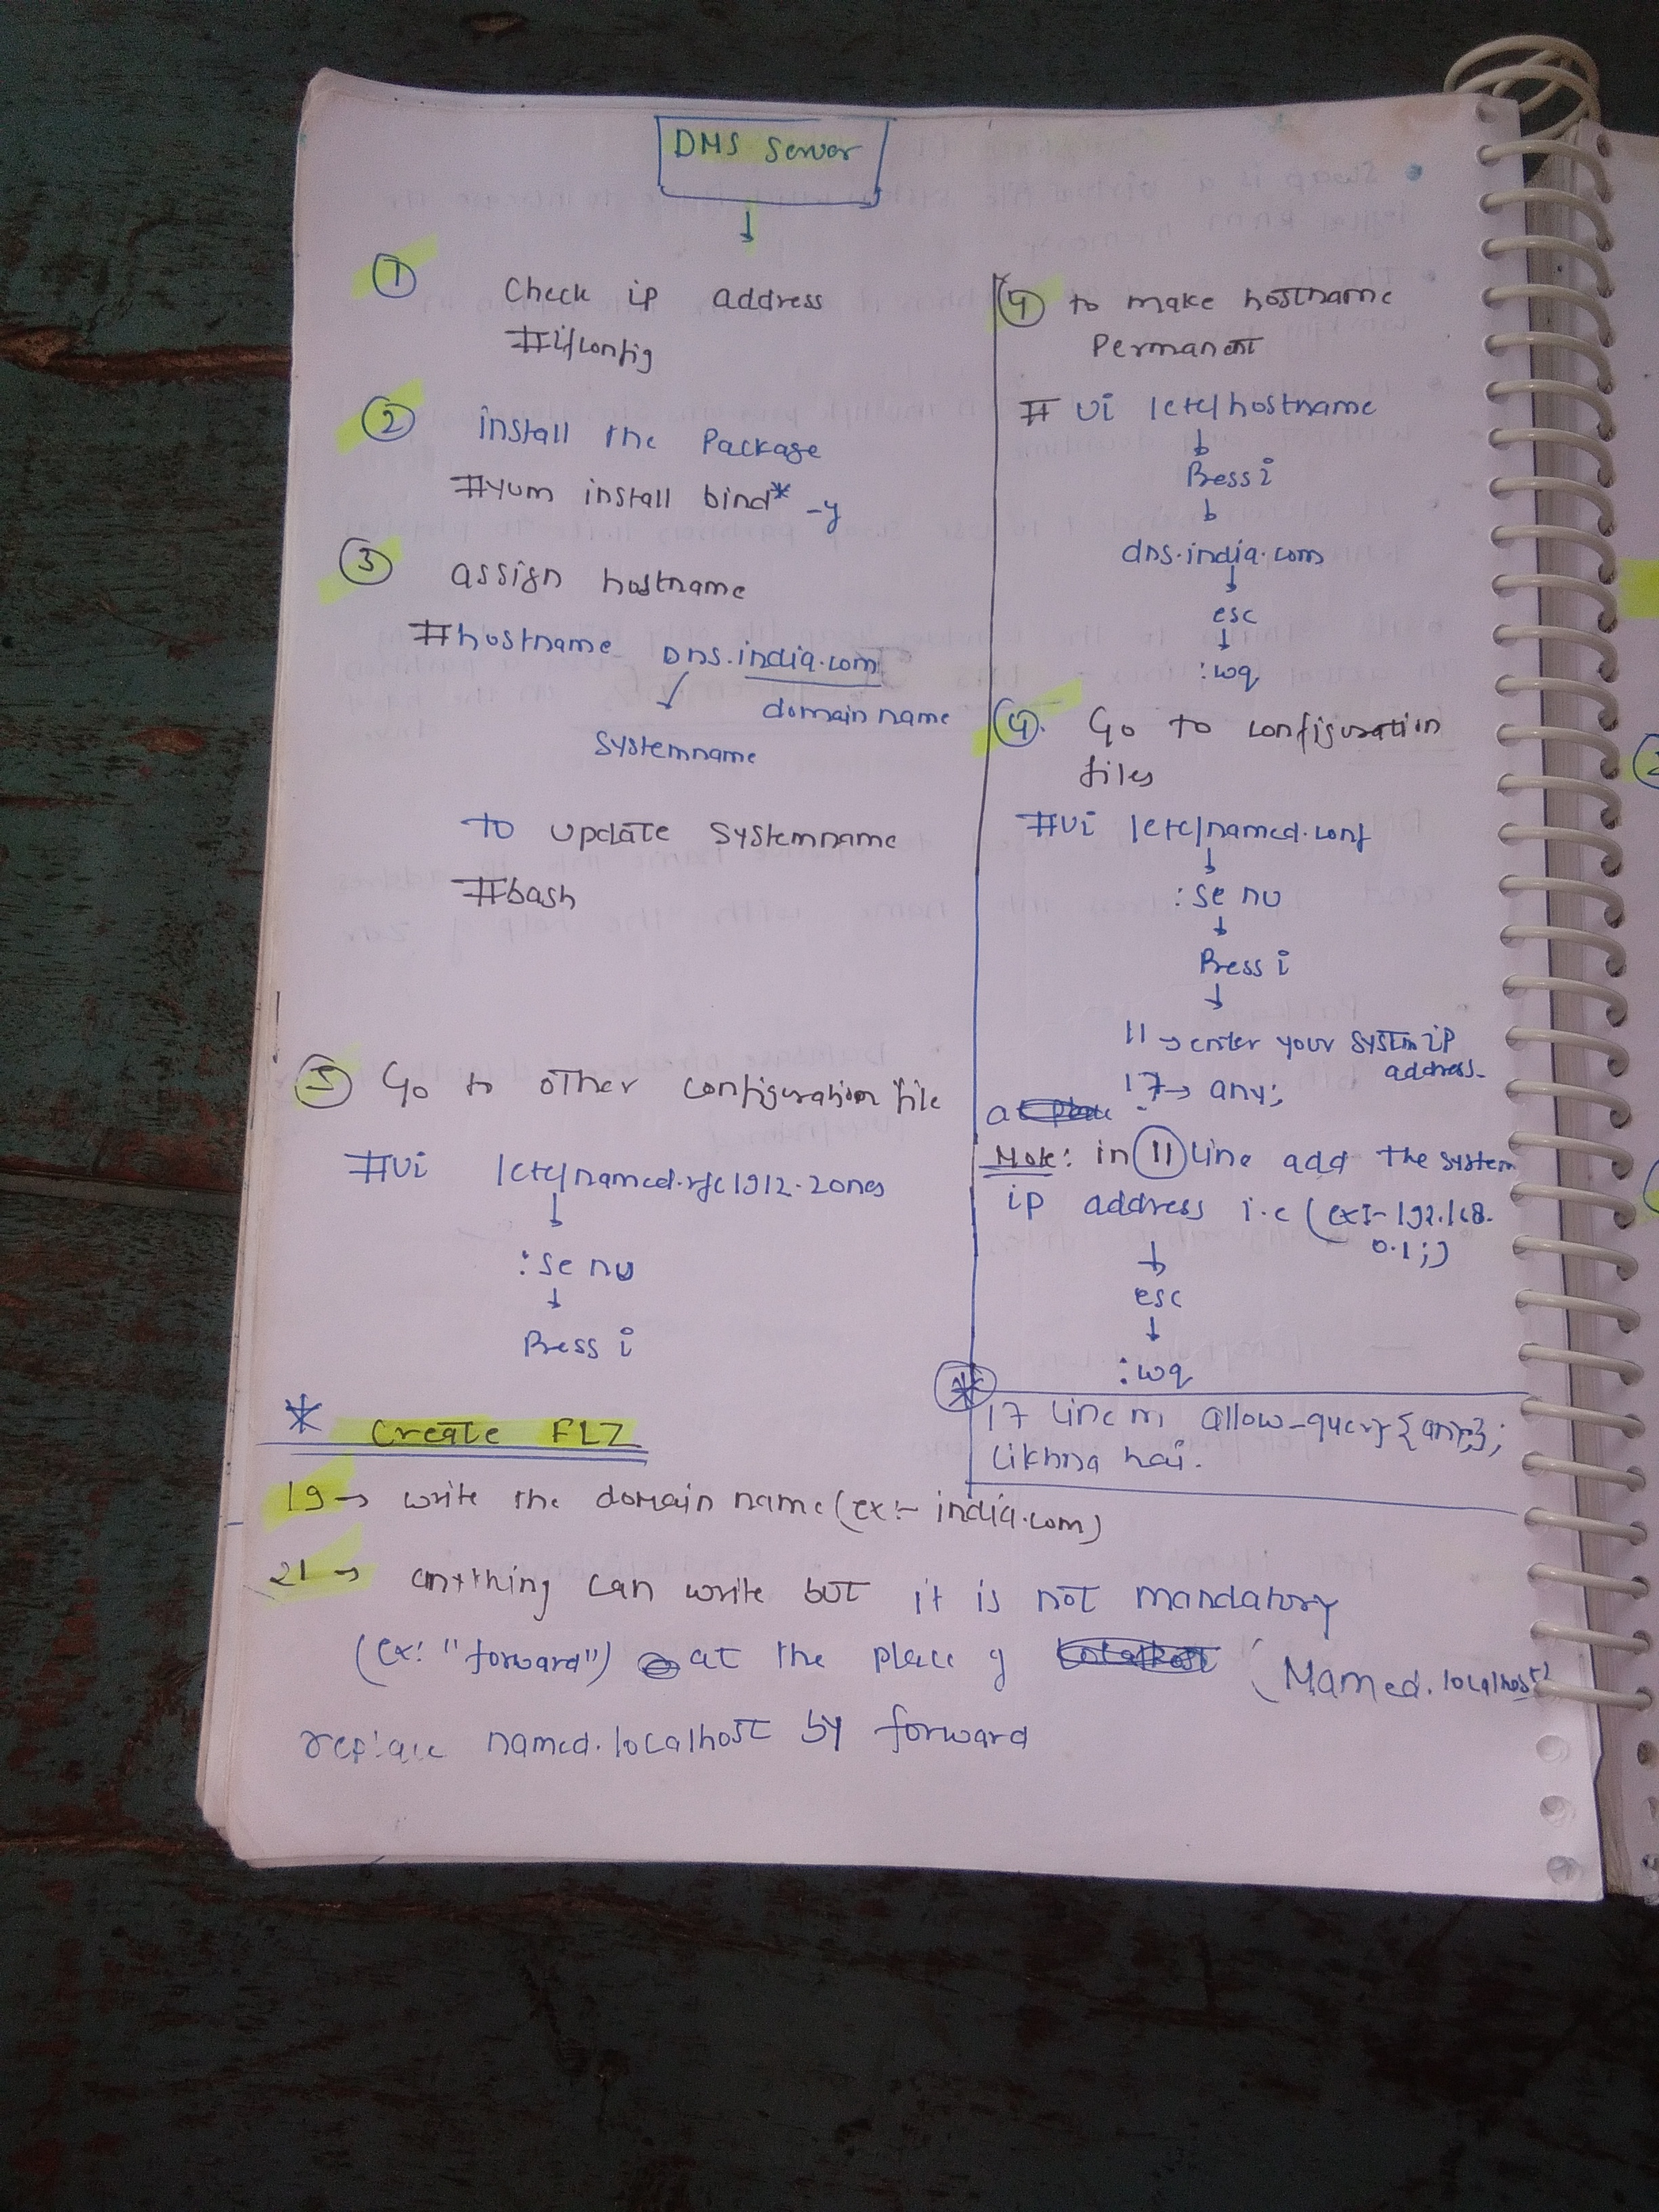 DNS Server
① Check ip address
#ifconfig
② install the Package
#yum install bind* -y
③ assign hostname
#hostname Dns.india.com
domain name
Systemname
to update Systemname
#bash
④ to make hostname
Permanent
# vi /etc/hostname
Press i
dns.india.com
esc
:wq
④. Go to configuration
files
#vi /etc/named.conf
:se nu
Press i
11 → enter your system ip
address
17 → any;
Note: in ⑪ line add the system
ip address i.e (ex:- 192.168.
0.1;)
esc
:wq
* 17 line m allow-query {any;};
likhna hai.
⑤ Go to other configuration file
#vi /etc/named.rfc1912.zones
:se nu
Press i
* Create FLZ
19 → write the domain name (ex:- india.com)
21 → anything can write but it is not mandatory
(ex: "forward") at the place of (Named.localhost)
replace named.localhost by forward